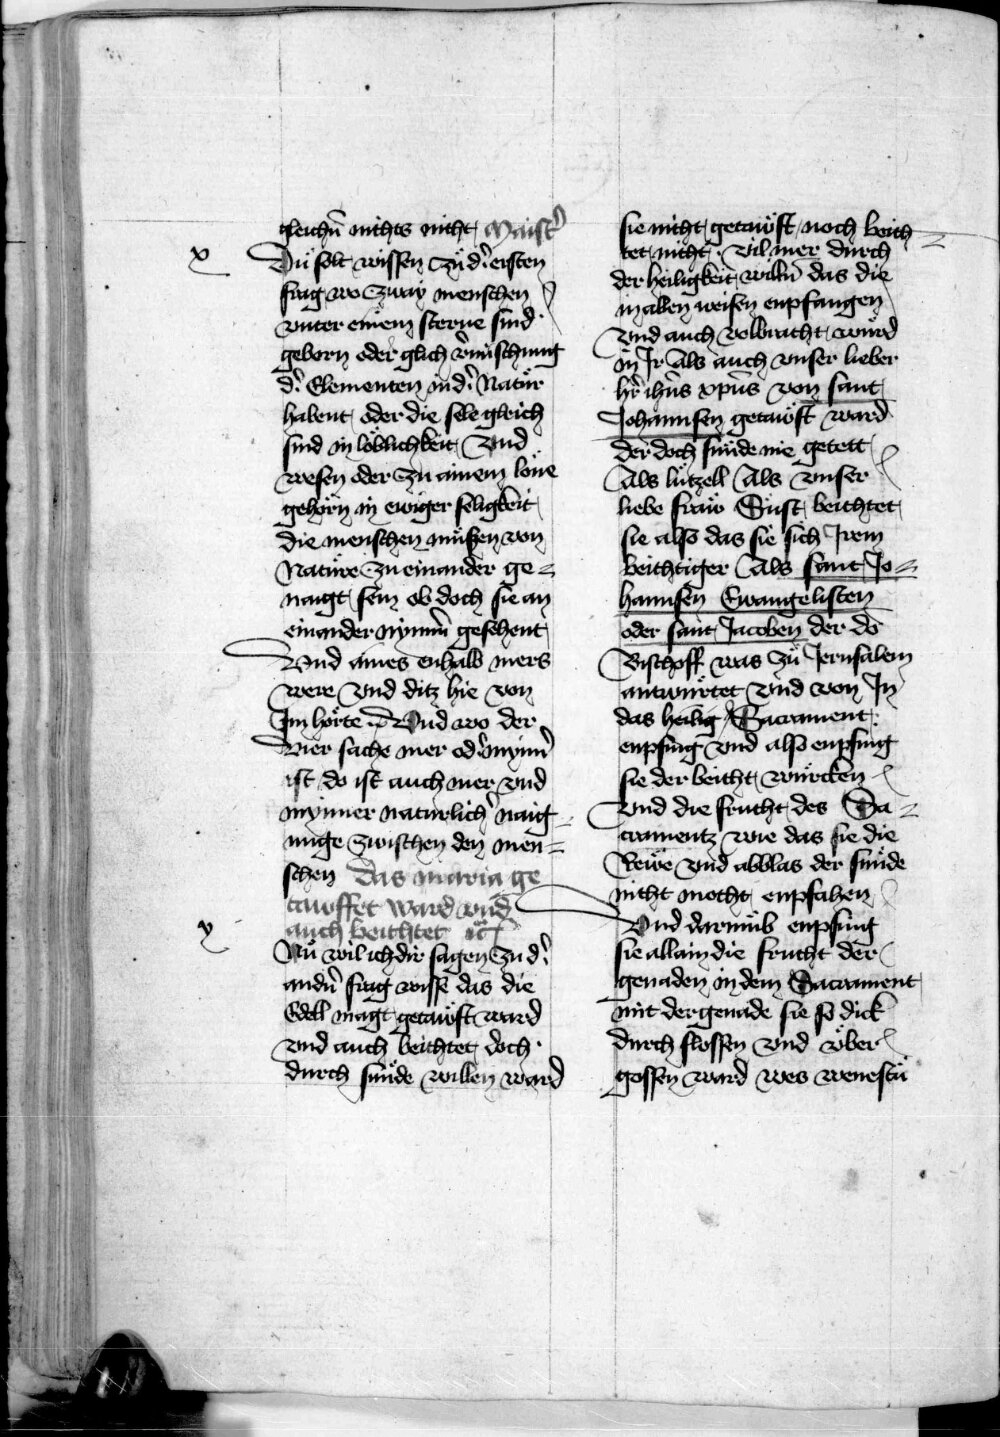 gleichn̄ nichts nicht Maist̄
x
Du solt wissen zu d' ersten
frag wo zway menschen
vnter einem sterne sind
geborn oder glich v'mischung
d' Elementen in d' Natur
habent oder die sele gleich
sind in löblichkeit Vnd
wesen oder zu ainem lone
gehörn in ewiger seligkeit
die menschen müssen von
Nature zu einander ge=
naigt sein ob doch sie an
einander nymm̄ gesehent
Vnd aines enhalb mers
were vnd ditz hie von
Jm hörte Vnd wo der
vier sache mer od' mynn'
ist do ist auch mer vnd
mynner naturlich' naig=
unge zwischen den men=
schen Das maria ge
tauffet ward vnd
auch beichtet etc
x
Nu wil ich dir sagen zu d'
andn̄ frag wisse das die
Edell magt getauöft ward
vnd auch beichtet doch
durch sunde willen ward
sie nicht getauöft noch beich=
tet nicht vil mer durch
der heiligkeit willn̄ das die
in allen weisen enpfangen
Vnd auch volbracht würd
in Jr Als auch vnser lieber
hr̄ ihūs xpūs von sant
Johannsen getauöft ward
der doch sunde nie getett
Als lützell Als vnser
liebe fraw Sust beichtet
sie also das sie sich Jrem
beichtiger Als sant Jo=
hannsen Ewangelisten
oder sant Jacoben der do
Bischoff was zu Jerusalem
antwürtet vnd von Jn
das heilig Sacrament
enpfing vnd also enpfing
sie der beicht würcken
Vnd die frucht des Sa=
cramentz wie das sie die
Rewe vnd abblas der sunde
nicht mocht enpfahen
Vnd darumb enpfing
sie allain die frucht der
genaden in dem Sacrament
mit der genade sie so dick
durch flossen vnd vber
gossen ward wes wenestu